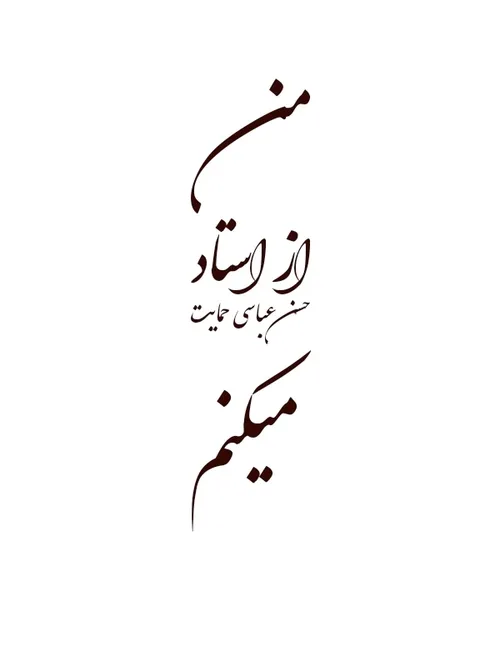 من
از استاد
حسن عباسی حمایت
میکنم